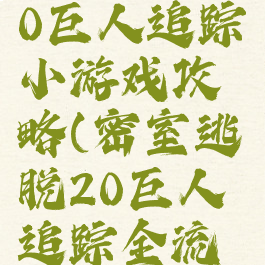 0巨人追踪
小游戏攻
略(密室逃
脱20巨人
追踪全流